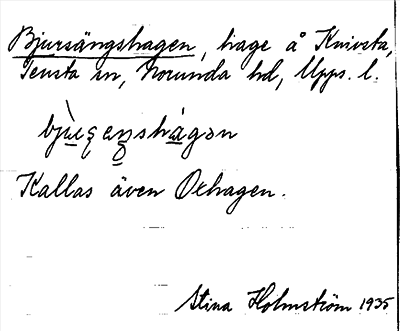 Bjursängshagen, hage å Knivsta,
Tensta sn, Norunda hd, Upps. l.
bjùʂeŋshágən
Kallas även Oxhagen.
Stina Holmström 1935